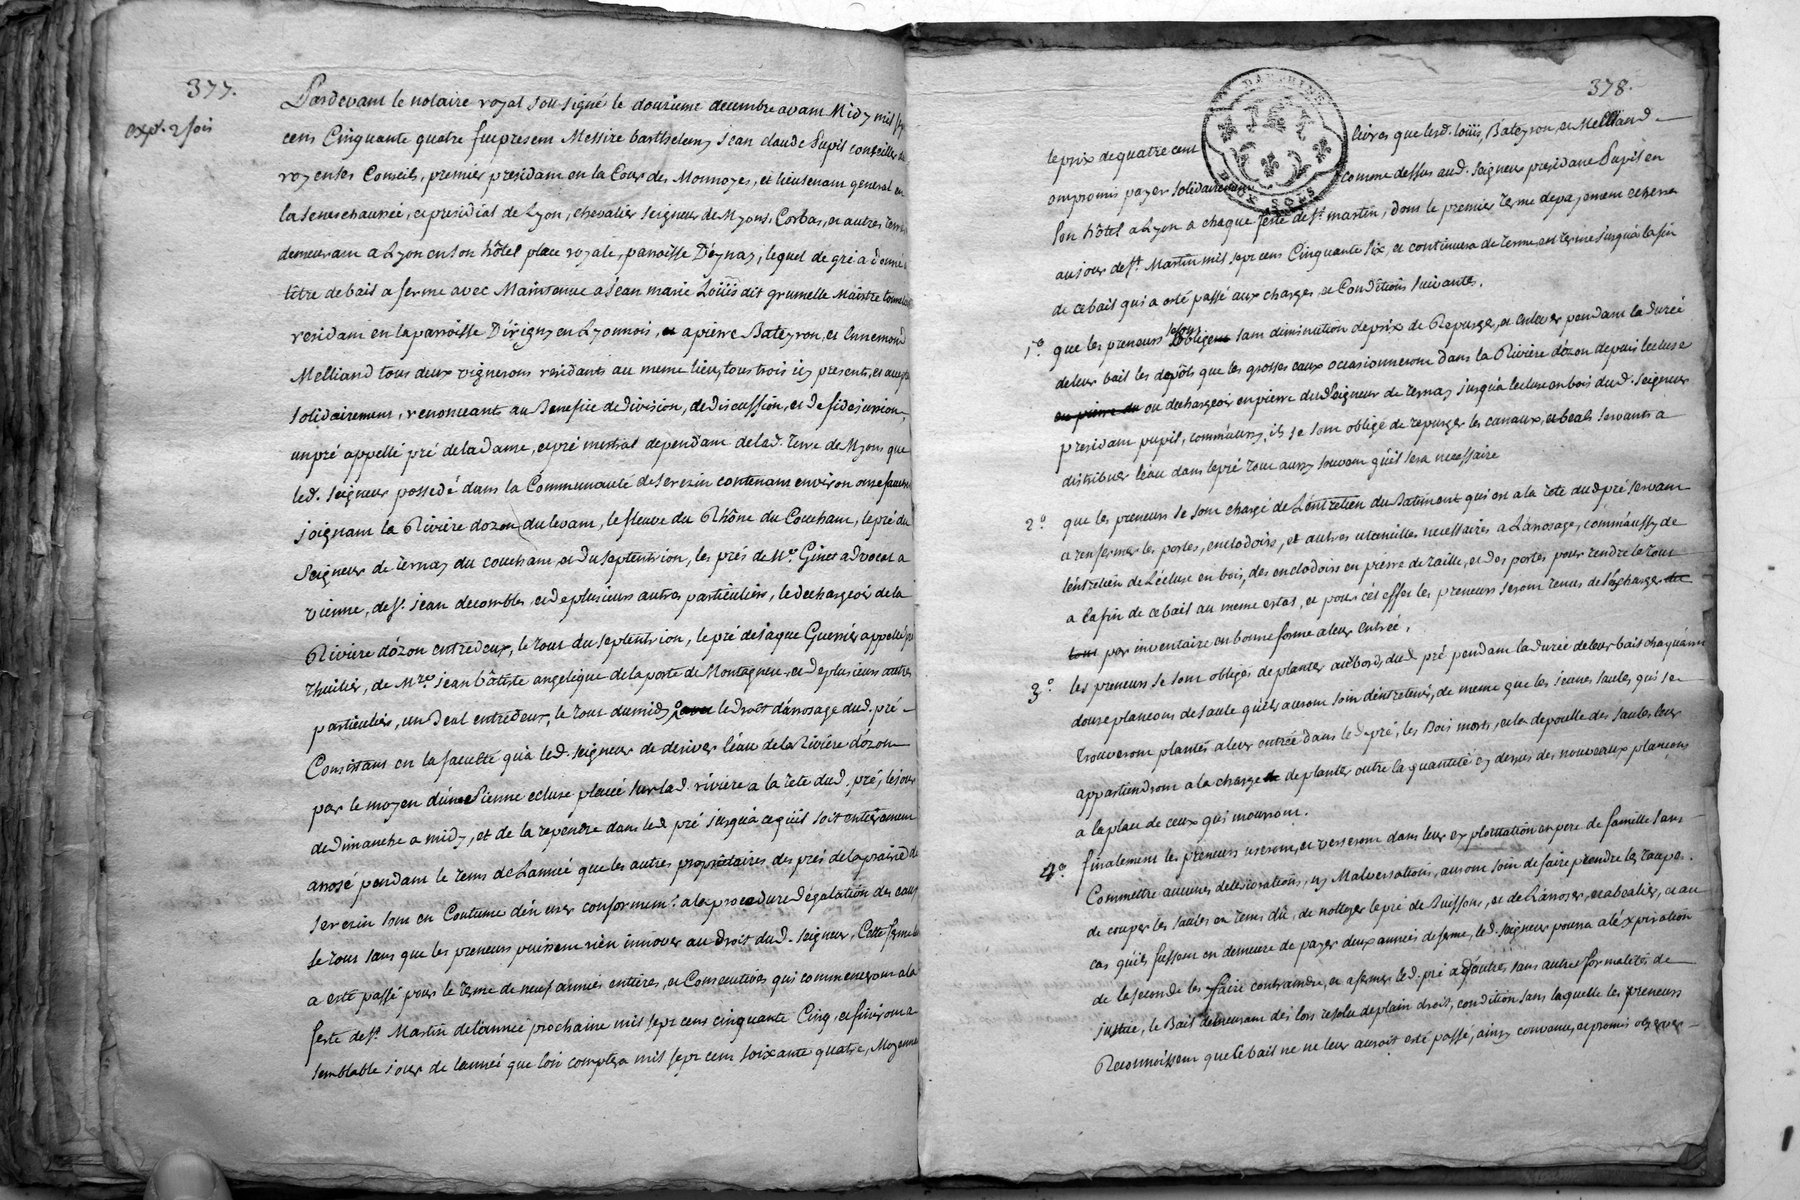 377.
expé. 2 fois
Pardevant le notaire royal soussigné le douzième decembre avant Midy mil sept
cens Cinquante quatre fut present Messire barthelemy Jean claude Pupil conseiller du
roy en ses Conseils, premier president en la Cour des Monnoyes, et lieutenant general en
la Seneschaussée, et presidial de Lyon, chevalier Seigneur de Myons, Corbas, et autres terres
demeurant a Lyon en son hôtel place royale, paroisse D'eynay, lequel de gré a donné a
titre de bail a ferme avec Maintenue a Jean marie Loüis dit grumelle Maistre
residant en la paroisse D'irigny en Lyonnois, et a pierre Bateyron, et Ennemond
Melliand tous deux vignerons residants au meme lieu, tous trois icy presents, et acceptants
solidairement, renonceant au Benefice de division, de discussion, et de fidejussion,
un pré appellé pré de la Dame, et pré mestral dependant de lad. Terre de Myons que
led. Seigneur possede dans la Communauté de Serezin contenant environ onze
joignant la Riviére dozon du levant, le fleuve du Rhône du Couchant, le pré du
Seigneur de Ternay du couchant et du septentrion, les prés de Mr. Ginet advocat a
vienne, de Sr. jean decombles, et de plusieurs autres particuliers, le dechargeoir de la
Riviere d'ozon entre deux, le tout du septentrion, le pré de jaque Guerrier appellé
thuilier, de Mre. jean bâtiste angelique de la porte de Montagneu, et de plusieurs autres
particuliers, un Beal entre deux, le tout du midy, le droit d'arrosage dud. pré
Consistant en la faculté qu'a led. Seigneur de deriver l'eau de la Riviére d'ozon
par le moyen d'une sienne ecluse placée sur lad. riviére a la tete dud. pré, le jour
de Dimanche a midy, et de la rependre dans led. pré jusqu'a ce qu'il soit entiérement
arrosé pendant le tems de L'année que les autres proprietaires des prés de la prairie de
Serezin sont en Coutume d'en user conformemt. a la procedure d'egalation des eaux
le tout sans que les preneurs puissent rién innover au droit dud. Seigneur, Cette ferme
a esté passé pour le terme de neuf années entiéres, et Consecutives qui commenceront a la
feste de St. Martin de l'année prochaine mil sept cens cinquante Cinq, et finiront a
semblable jour de l'année que l'on comptera mil sept cent soixante quatre, Moyennant
378.
le prix de quatre cent livres que lesd. Loüis, Bateyron, et Melliand
ont promis payer solidairement comme dessus aud. Seigneur president Pupil en
son hôtel a Lyon a chaque feste de St. martin, dont le premier terme de payement echerra
au jour de St. Martin mil sept cens Cinquante six, et continuera de terme en terme jusqu'a la fin
de ce bail qui a esté passé aux charges, et Conditions suivantes.
1°. que les preneurs se sont obligés sans diminution de prix de Repurger, et enlever pendant la durée
de leur bail les depôts que les grosses eaux occasionneront dans la Riviére d'ozon depuis lecluse
en pierre du ou dechargeoir en pierre dud. Seigneur de Ternay jusqu'a lecluse en bois dud. Seigneur
president pupil, comm'aussy ils se sont obligé de repurger les canaux, et beals servants a
distribuer l'eau dans le pré tout aussy souvent qu'il sera necessaire
2°. que les preneurs se sont chargé de L'entretien du Batiment qui est a la tete dud. pré servant
a renfermer les portes, enclodoirs, et autres utencilles necessaires a L'arrosage, comm'aussy de
l'entretien de L'ecluse en bois, des enclodoirs en pierre de taille, et des portes pour rendre le tout
a la fin de ce bail au meme estat, et pour cét effet les preneurs seront tenus de s'en charger du
tout par inventaire en bonne forme a leur entrée.
3°. les preneurs se sont obligés de planter au bord dud. pré pendant la durée de leur bail chaqu'année
douze plancons de saule qu'ils auront soin d'entretenir, de meme que les jeunes saules qui se
trouveront plantés a leur entrée dans led. pré, les Bois morts, et la depouille des saules leur
appartiendront a la charge de de planter outre la quantité cy dessus de nouveaux plancons
a la place de ceux qui mourront.
4°. finalement les preneurs useront, et verseront dans leur exploitation en pere de famille sans
Commettre aucunes deteriorations, ny Malversations, auront soin de faire prendre les taupes.
de couper les saules en tems dû, de nettoyer le pré de Buissons, et de L'arroser, et abealer, et au
cas qu'ils fussent en demeure de payer deux années de ferme, led. Seigneur pourra a léxpiration
de la seconde les y faire contraindre, et affermer led. pré a d'autres sans autres formalités de
justice, le Bail demeurant dés lors resolu de plain droit, condition sans laquelle les preneurs
Reconnoissent que le bail ne ne leur auroit esté passé, ainsy convenu, et promis observer